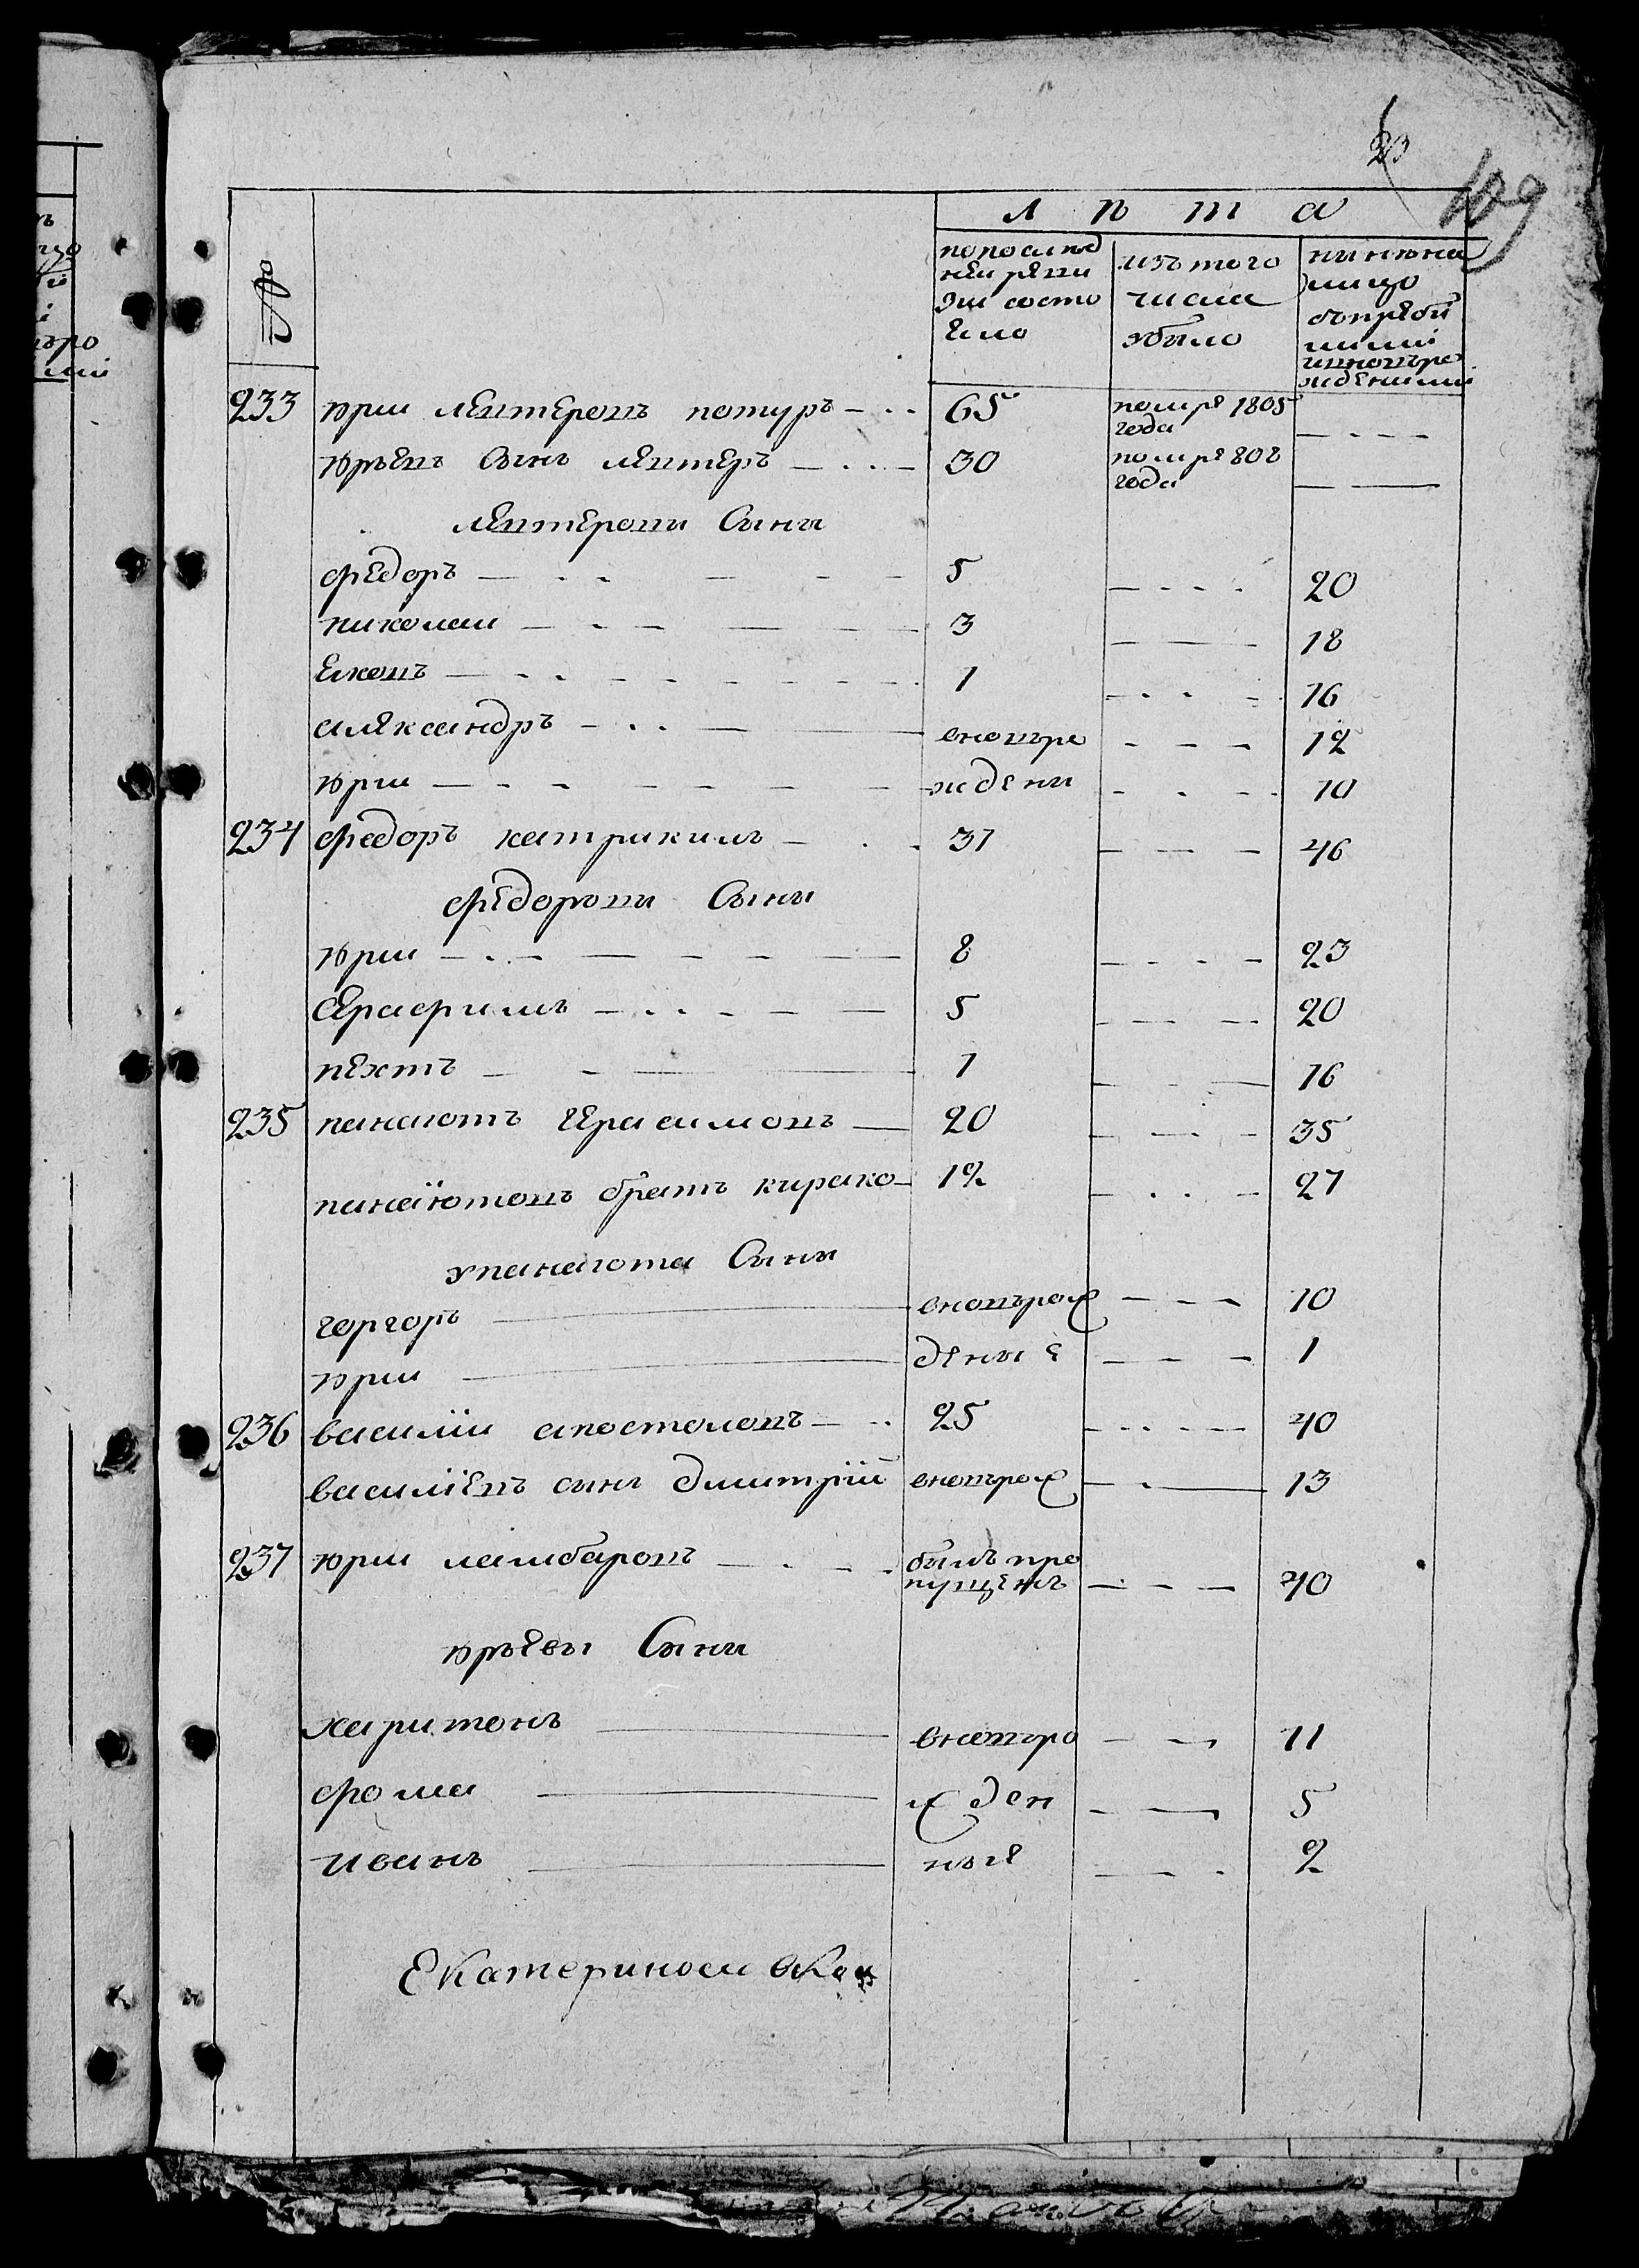 109
№
Л ѣ т а
попослѣд
ней реви
зіи состо
ело
изъ того
числа
убыло
нынѣ на
лицо
съ прибы
лыми
ицновъро
жденыими
233 юрiи левтеровъ котуръ 65 помре 1805 года
юрьевъ Сынъ левтеръ 30 помре 808 года
левтеровы Сыны
федоръ 5 20
николаи 3 18
Ековъ 1 16
александръ вновъро 12
юрiи ждены 10
234 федоръ катрикилъ 31 46
федоровы Сыны
юрiи 8 23
Серафимъ 5 20
пехтъ 1 16
235 панаютъ герасимовъ 20 35
панаютовъ братъ кирако 12 27
у панаюта Сыны
горгоръ вновърож 10
юрiи деные 1
236 василіи апостоловъ 25 40
василіевъ сынъ дмитрій вновърож 13
237 юрiи ламбаровъ былъ про
пущенъ 40
юрьевы Сыны
харитонъ вновъро 11
фома жден 5
иванъ ные 2
Екатеринославской